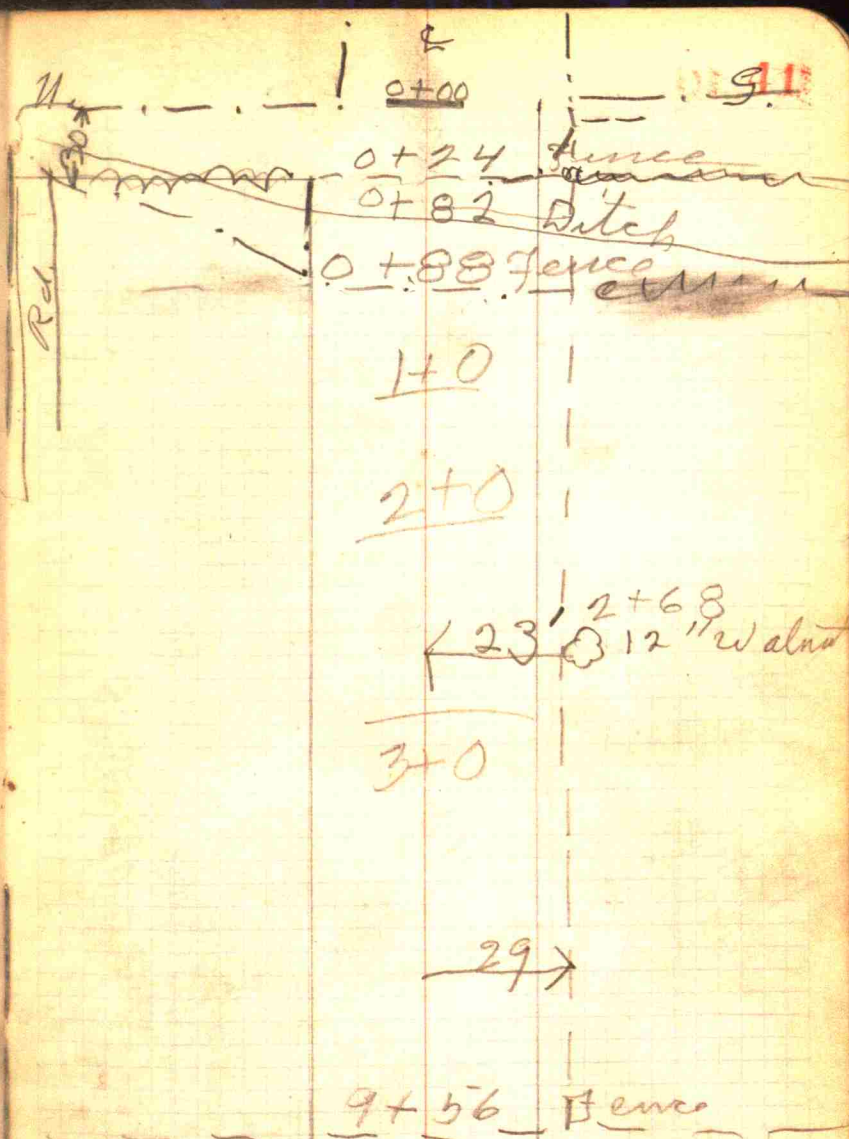 ℄
N 0+00 S 41
30
0+24 Fence
0+82 Ditch
0+88 Fence
Rd
1+0
2+0
2+68
23' 12" Walnut
3+0
29
9+56 Fence